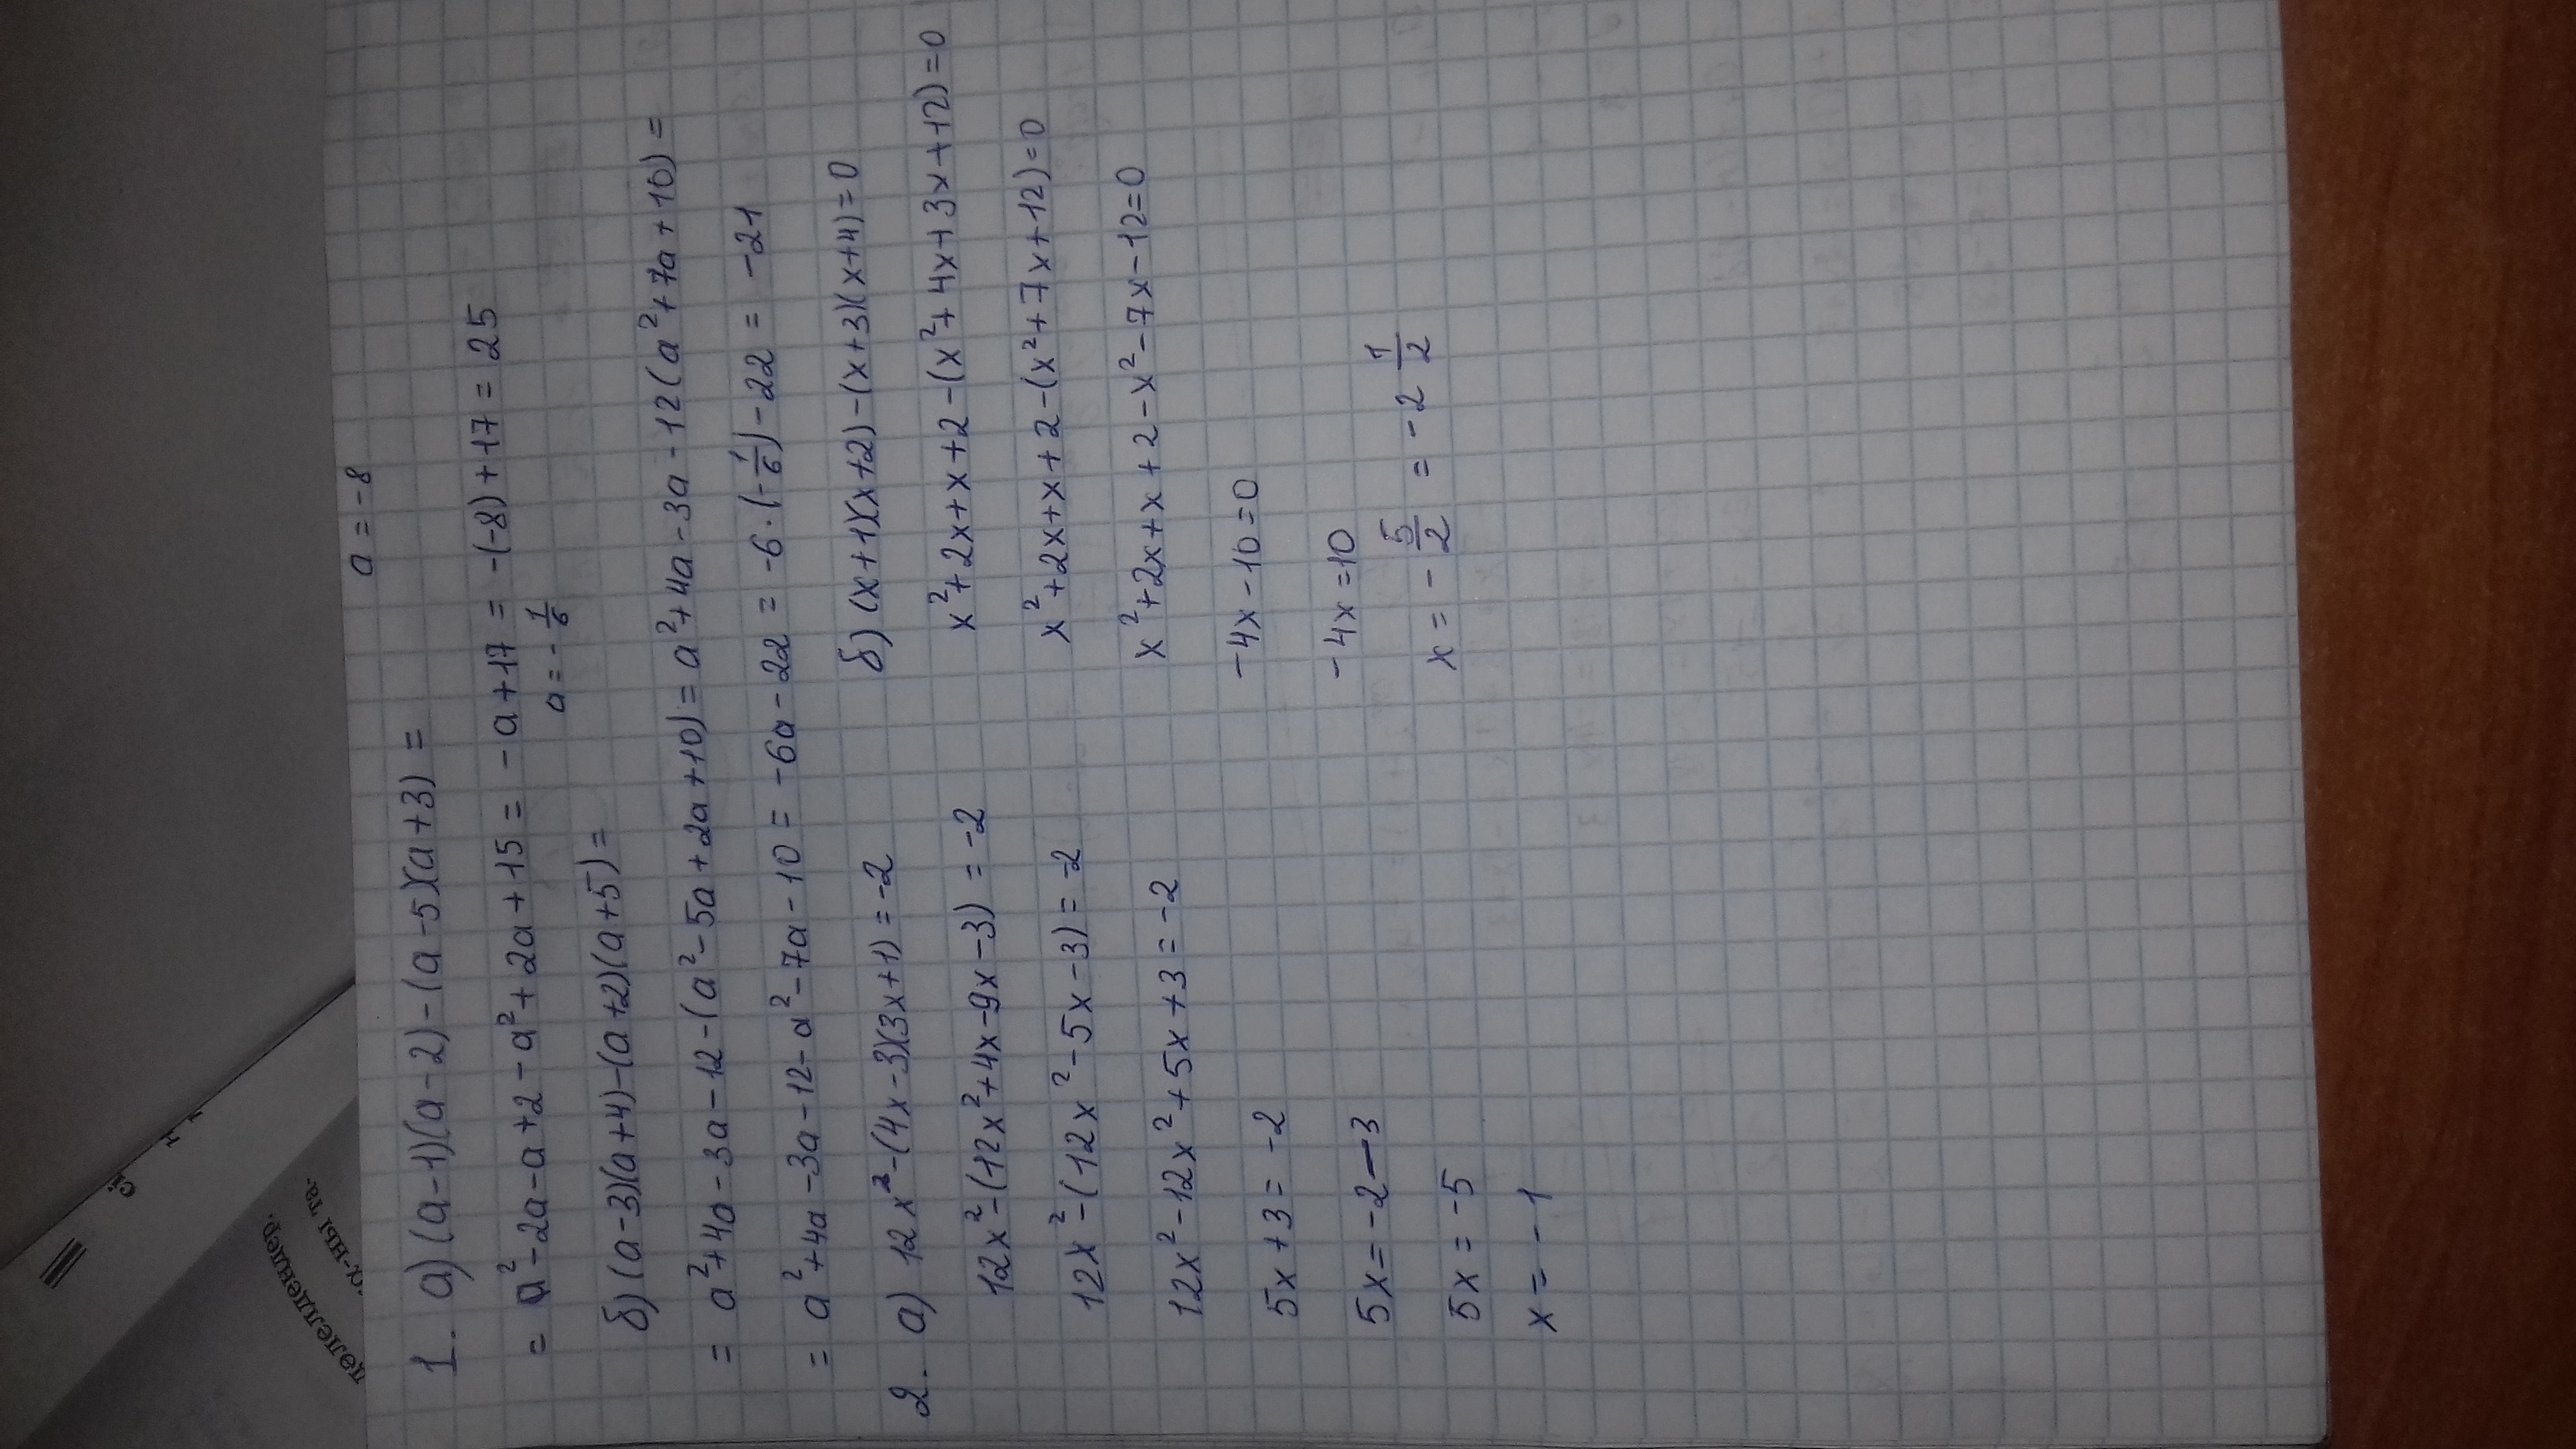 a = -8
1. а) (a-1)(a-2)-(a-5)(a+3) =
= a²-2a-a+2-a²+2a+15 = -a+17 = -(-8)+17 = 25
a = -1/6
б) (a-3)(a+4)-(a+2)(a+5) =
= a²+4a-3a-12-(a²-5a+2a+10) = a²+4a-3a-12(a²+7a+10) =
= a²+4a-3a-12-a²-7a-10 = -6a-22 = -6·(-1/6)-22 = -21
2. а) 12x²-(4x-3)(3x+1) = -2
12x²-(12x²+4x-9x-3) = -2
12x²-(12x²-5x-3) = -2
12x²-12x²+5x+3 = -2
5x+3 = -2
5x = -2-3
5x = -5
x = -1
б) (x+1)(x+2)-(x+3)(x+4) = 0
x²+2x+x+2-(x²+4x+3x+12) = 0
x²+2x+x+2-(x²+7x+12) = 0
x²+2x+x+2-x²-7x-12 = 0
-4x-10 = 0
-4x = 10
x = -5/2 = -2 1/2
дәлелдеңдер.
-ны та-